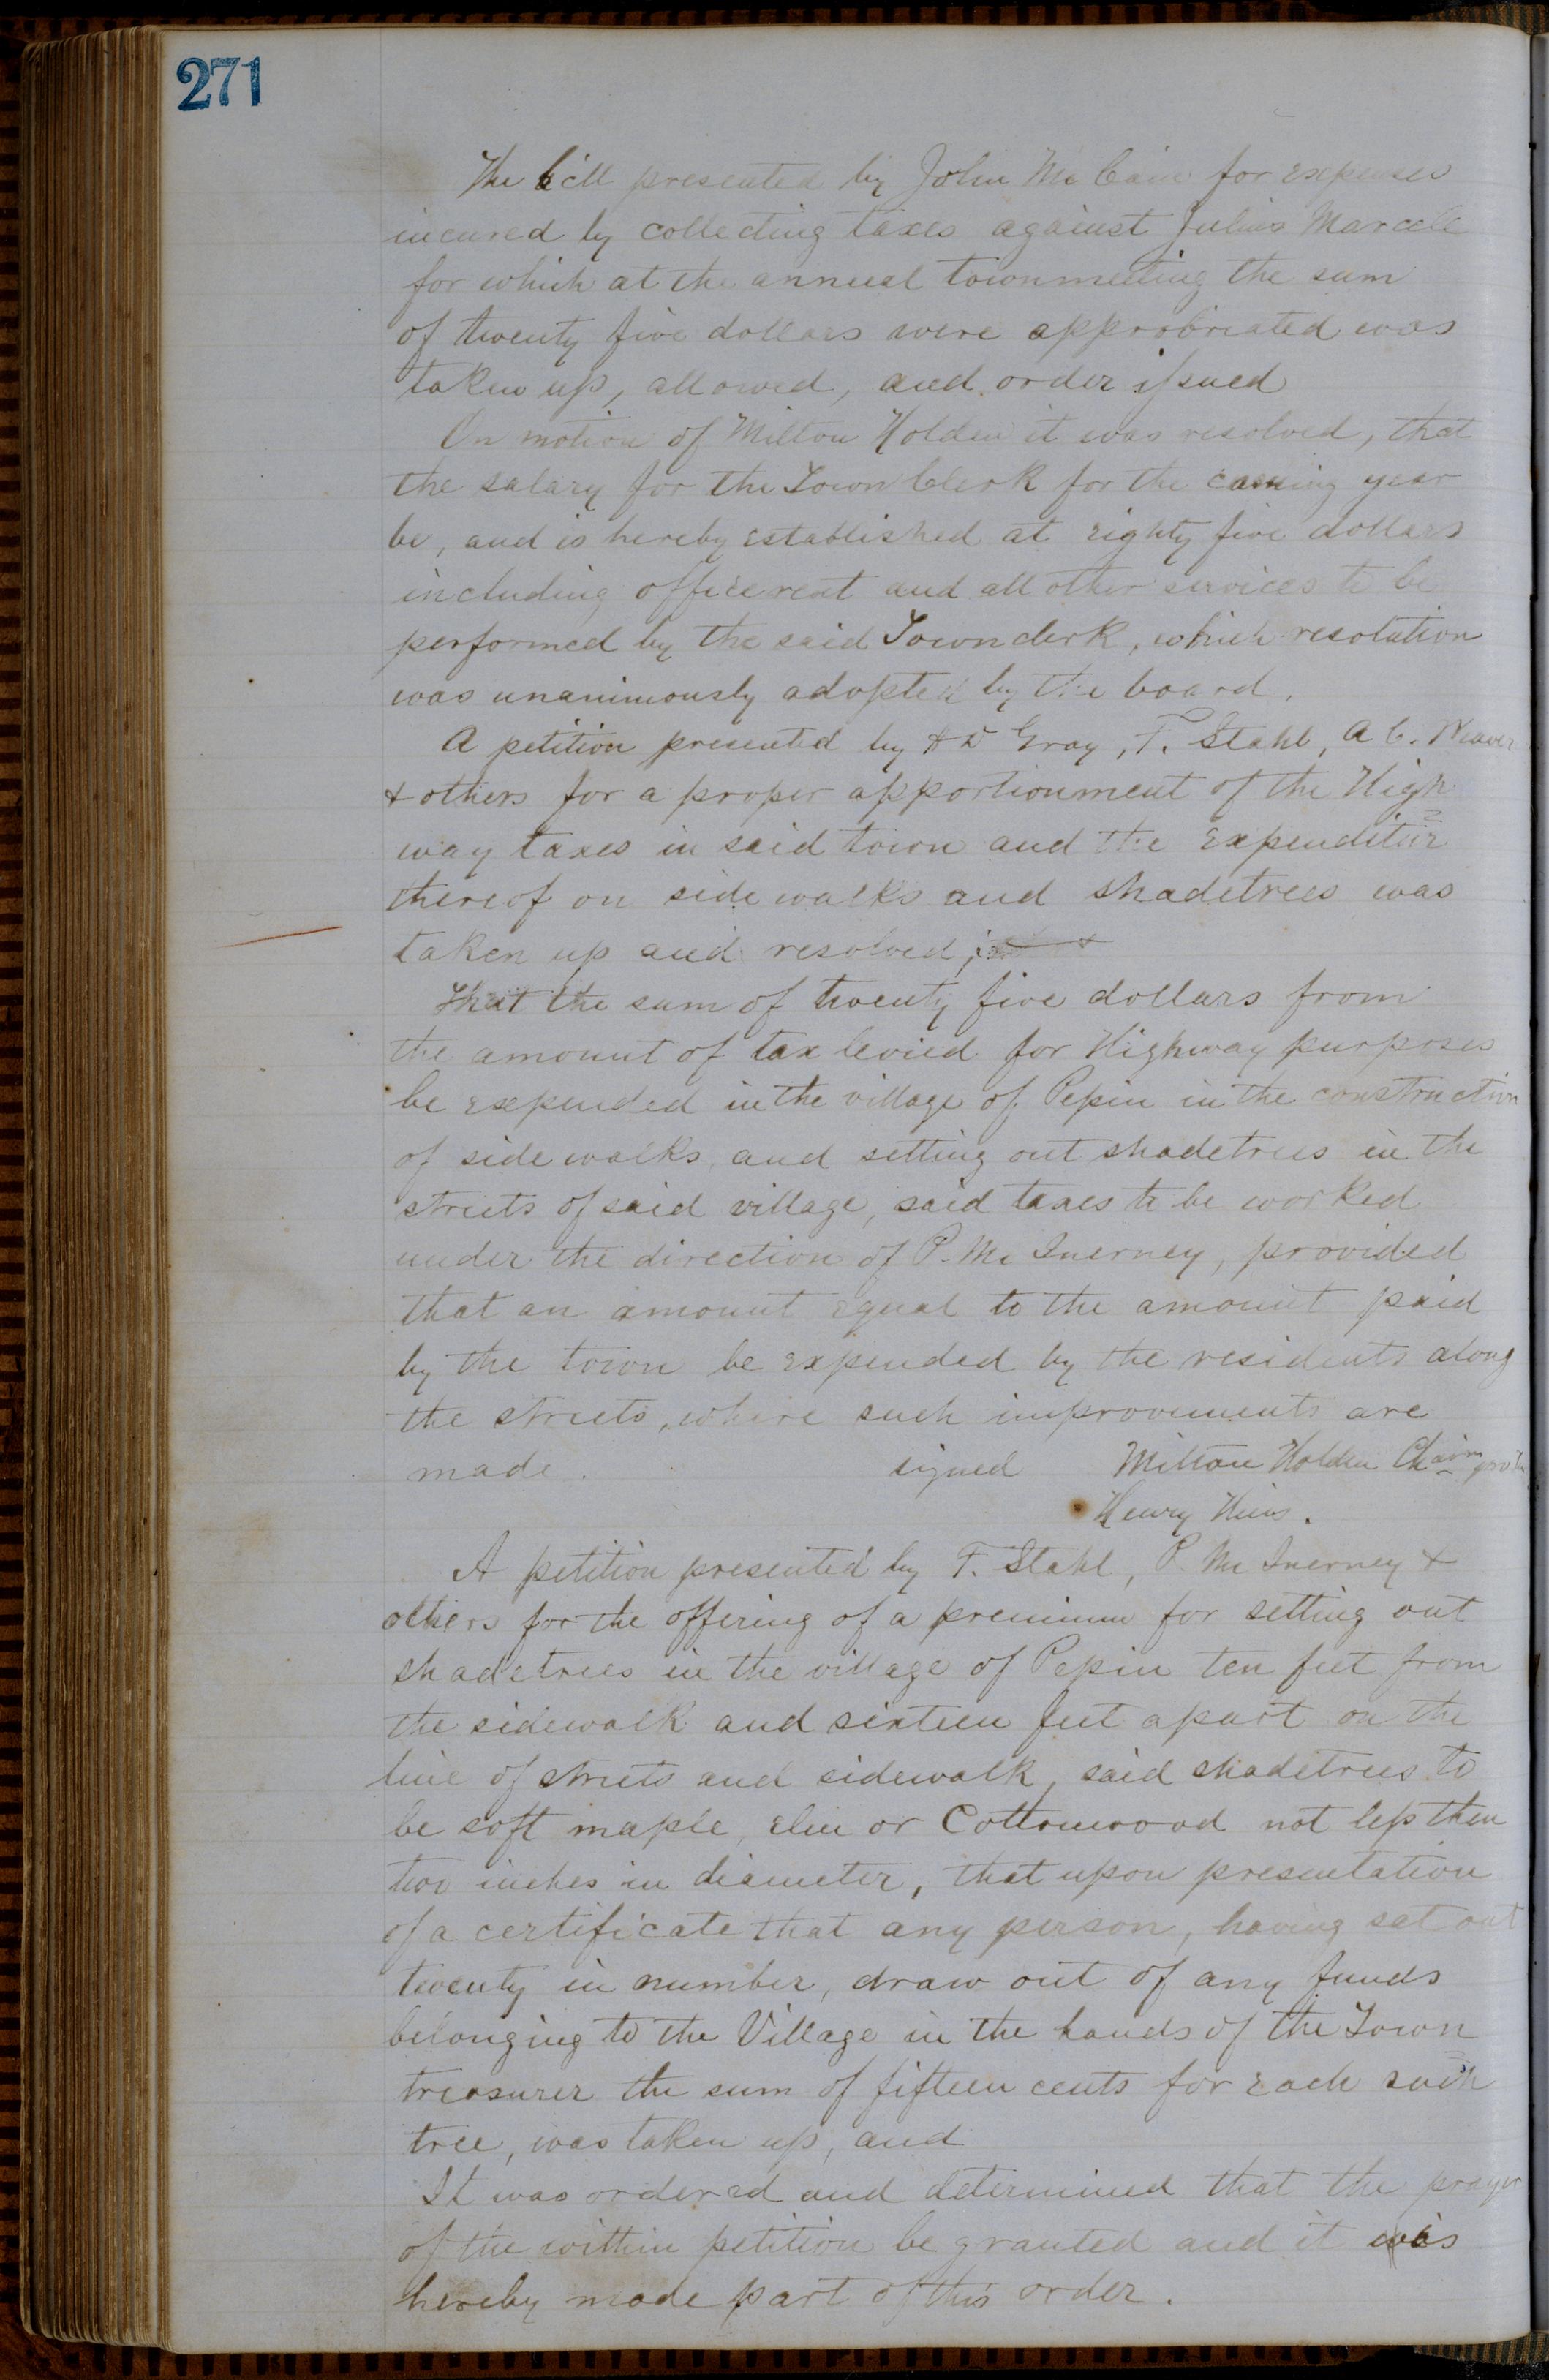 271
The bill presented by John Mc Cain for expenses
incured by collecting taxes against Julius Marcell
for which at the annual townmeeting the sum
of twenty five dollars were approbriated was
taken up, allowed, and order issued
On motion of Milton Holden it was resolved, that
the salary for the Town Clerk for the coming year
be, and is hereby established at eighty five dollars
including office rent and all other services to be
performed by the said Town clerk, which resolution
was unanimously adopted by the board.
A petition presented by Gray, F. Stahl, A C. Weaver
& others for a proper apportionment of the High
way taxes in said town and the expenditure
thereof on side walks and shadetrees was
taken up and resolved;
That the sum of twenty five dollars from
the amount of tax levied for Highway purposes
be expended in the village of Pepin in the construction
of side walks, and setting out shadetrees in the
streets of said village, said taxes to be worked
under the direction of P. Mc Inerney, provided
that an amount equal to the amount paid
by the town be expended by the residents along
the streets, where such improvements are
made. signed Milton Holden Chairm
Henry
A petition presented by F. Stahl, P. Mc Inerney &
others for the offering of a premium for setting out
shadetrees in the village of Pepin ten feet from
the sidewalk and sixteen feet apart on the
line of streets and sidewalk, said shadetrees to
be soft maple, elm or Cottonwood not less then
two inches in diameter, that upon presentation
of a certificate that any person, having set out
twenty in number, draw out of any funds
belonging to the Village in the hands of the Town
treasurer the sum of fifteen cents for each such
tree, was taken up, and
It was ordered and determined that the prayer
of the within petition be granted and it was
hereby made part of this order.